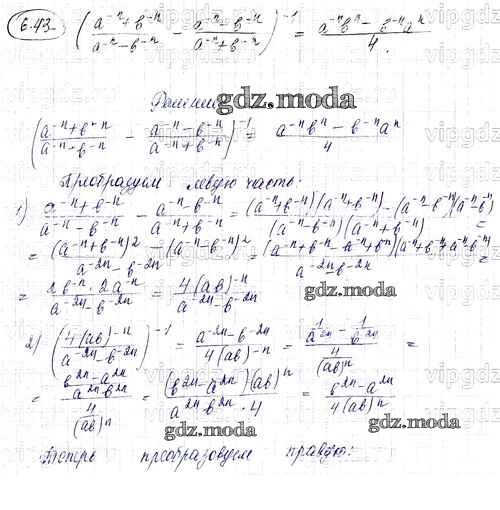 6.43. ((a⁻ⁿ+b⁻ⁿ)/(a⁻ⁿ-b⁻ⁿ) - (a⁻ⁿ-b⁻ⁿ)/(a⁻ⁿ+b⁻ⁿ))⁻¹ = (a⁻ⁿbⁿ - b⁻ⁿaⁿ)/4.
gdz.moda
((a⁻ⁿ+b⁻ⁿ)/(a⁻ⁿ-b⁻ⁿ) - (a⁻ⁿ-b⁻ⁿ)/(a⁻ⁿ+b⁻ⁿ))⁻¹ = (a⁻ⁿbⁿ - b⁻ⁿaⁿ)/4
Преобразуем левую часть:
1) (a⁻ⁿ+b⁻ⁿ)/(a⁻ⁿ-b⁻ⁿ) - (a⁻ⁿ-b⁻ⁿ)/(a⁻ⁿ+b⁻ⁿ) = ((a⁻ⁿ+b⁻ⁿ)(a⁻ⁿ+b⁻ⁿ)-(a⁻ⁿ-b⁻ⁿ)(a⁻ⁿ-b⁻ⁿ))/((a⁻ⁿ-b⁻ⁿ)(a⁻ⁿ+b⁻ⁿ)) =
= ((a⁻ⁿ+b⁻ⁿ)²-(a⁻ⁿ-b⁻ⁿ)²)/(a⁻²ⁿ-b⁻²ⁿ) = (a⁻ⁿ+b⁻ⁿ-a⁻ⁿ+b⁻ⁿ)(a⁻ⁿ+b⁻ⁿ+a⁻ⁿ-b⁻ⁿ)/(a⁻²ⁿ-b⁻²ⁿ) =
= (2b⁻ⁿ·2a⁻ⁿ)/(a⁻²ⁿ-b⁻²ⁿ) = 4(ab)⁻ⁿ/(a⁻²ⁿ-b⁻²ⁿ) gdz.moda
2) (4(ab)⁻ⁿ/(a⁻²ⁿ-b⁻²ⁿ))⁻¹ = (a⁻²ⁿ-b⁻²ⁿ)/(4(ab)⁻ⁿ) = (1/a²ⁿ - 1/b²ⁿ)/(4/(ab)ⁿ) =
= ((b²ⁿ-a²ⁿ)/(a²ⁿb²ⁿ))/(4/(ab)ⁿ) = ((b²ⁿ-a²ⁿ)(ab)ⁿ)/(a²ⁿb²ⁿ·4) = (b²ⁿ-a²ⁿ)/(4(ab)ⁿ)
gdz.moda gdz.moda
Теперь преобразовуем правую: